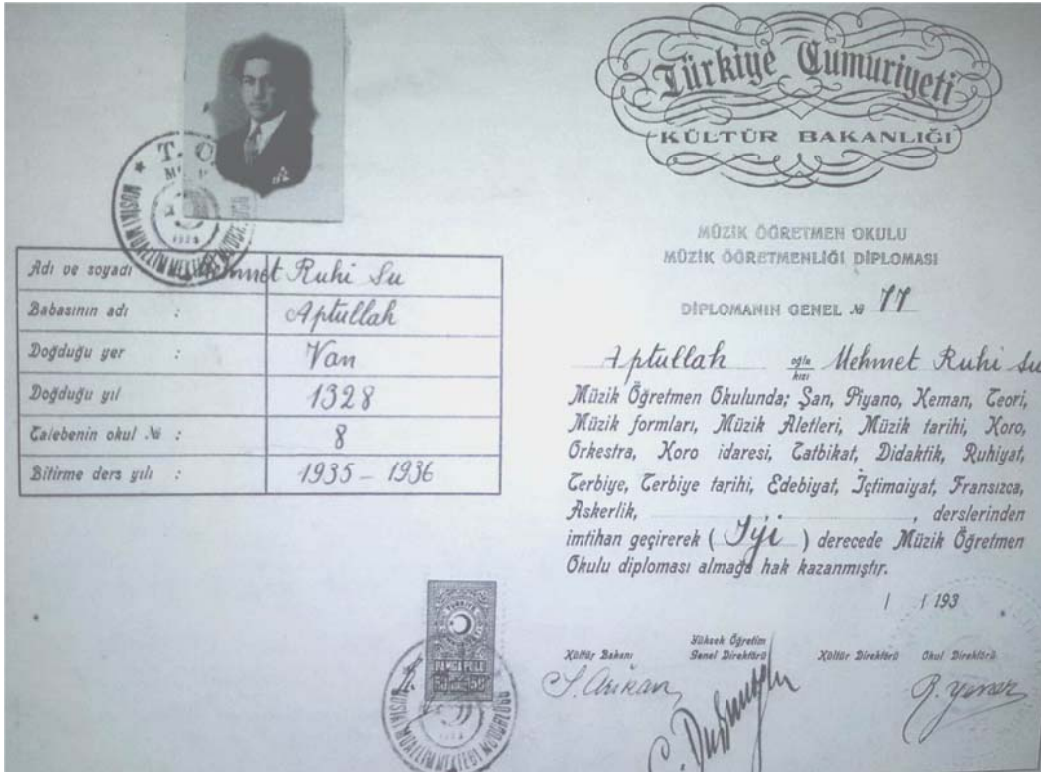 T. C.
MUSIKİ MUALLİM MEKTEBİ MÜDÜRLÜĞÜ
Adı ve soyadı Mehmet Ruhi Su
Babasının adı : Aptullah
Doğduğu yer : Van
Doğduğu yıl : 1328
Talebenin okul № : 8
Bitirme ders yılı : 1935 – 1936
PAMGA PULU
MUSIKİ MUALLİM MEKTEBİ MÜDÜRLÜĞÜ
Türkiye Cumuriyeti
KÜLTÜR BAKANLIĞI
MÜZİK ÖĞRETMEN OKULU
MÜZİK ÖĞRETMENLİĞİ DİPLOMASI
DİPLOMANIN GENEL № 77
Aptullah oğlu kızı Mehmet Ruhi Su
Müzik Öğretmen Okulunda; Şan, Piyano, Keman, Teori,
Müzik formları, Müzik Aletleri, Müzik tarihi, Koro,
Orkestra, Koro idaresi, Tatbikat, Didaktik, Ruhiyat,
Terbiye, Terbiye tarihi, Edebiyat, İçtimaiyat, Fransızca,
Askerlik, , derslerinden
imtihan geçirerek ( Iyi ) derecede Müzik Öğretmen
Okulu diploması almağa hak kazanmıştır.
/ / 193
Kültür Bakanı Yüksek Öğretim Genel Direktörü Kültür Direktörü Okul Direktörü
S. Arıkan